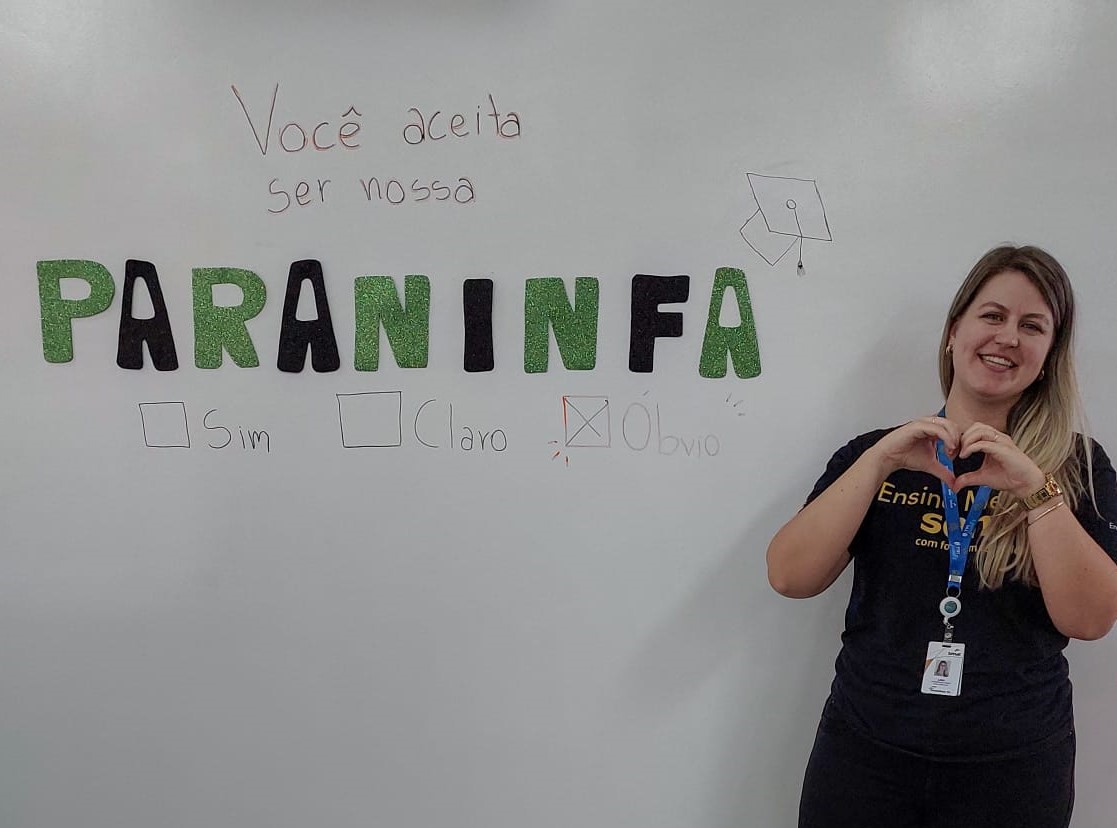 Você aceita
ser nossa
PARANINFA
Sim Claro Óbvio
Ensino Mé
sen
com fo m